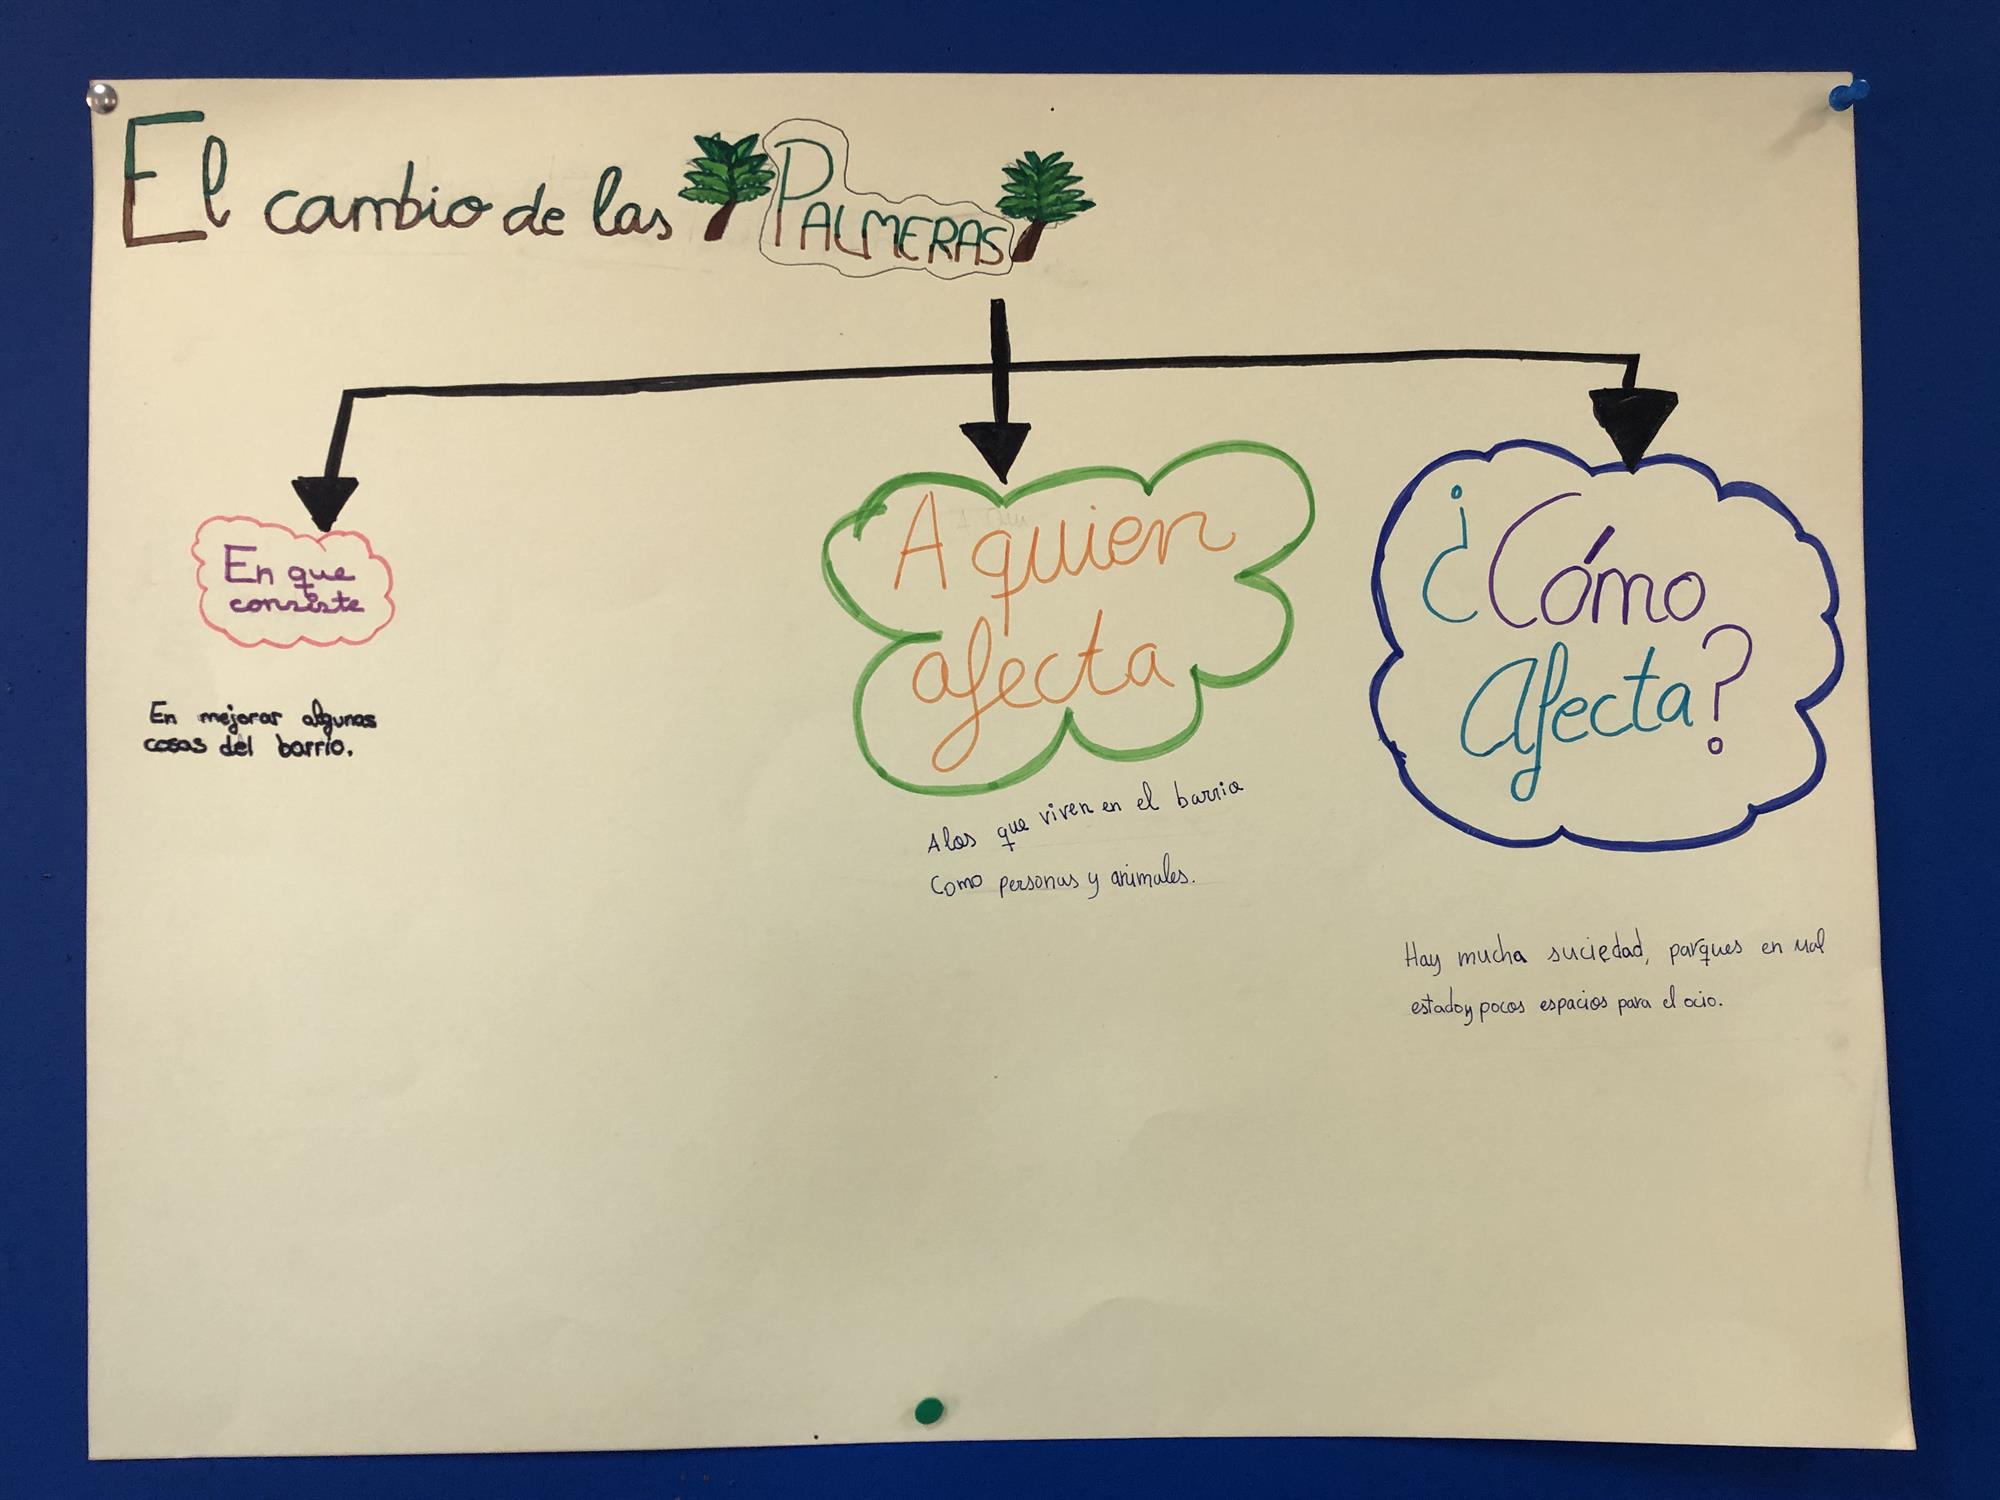 El cambio de las PALMERAS
En que
consiste
En mejorar algunas
cosas del barrio.
A quien
afecta
A los que viven en el barrio
Como personas y animales.
¿Cómo
Afecta?
Hay mucha suciedad, parques en mal
estado y pocos espacios para el ocio.